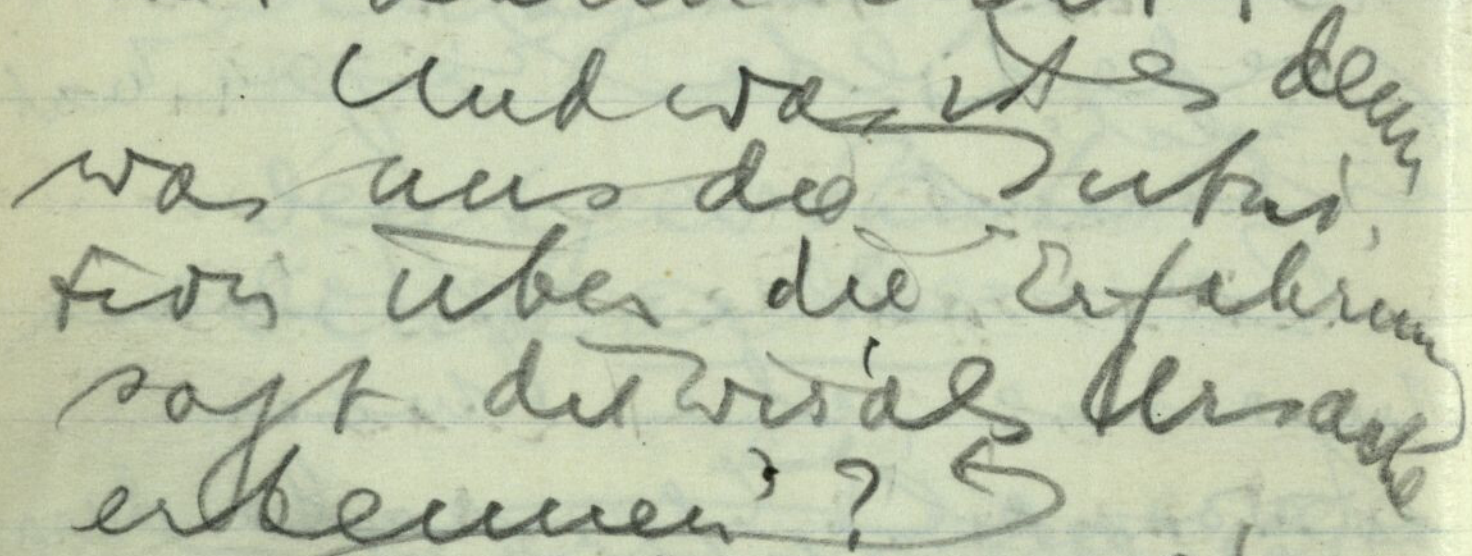 Und was ist es denn
was uns die Intui-
tion über die Erfahrung
sagt die wir als Ursache
erkennen?